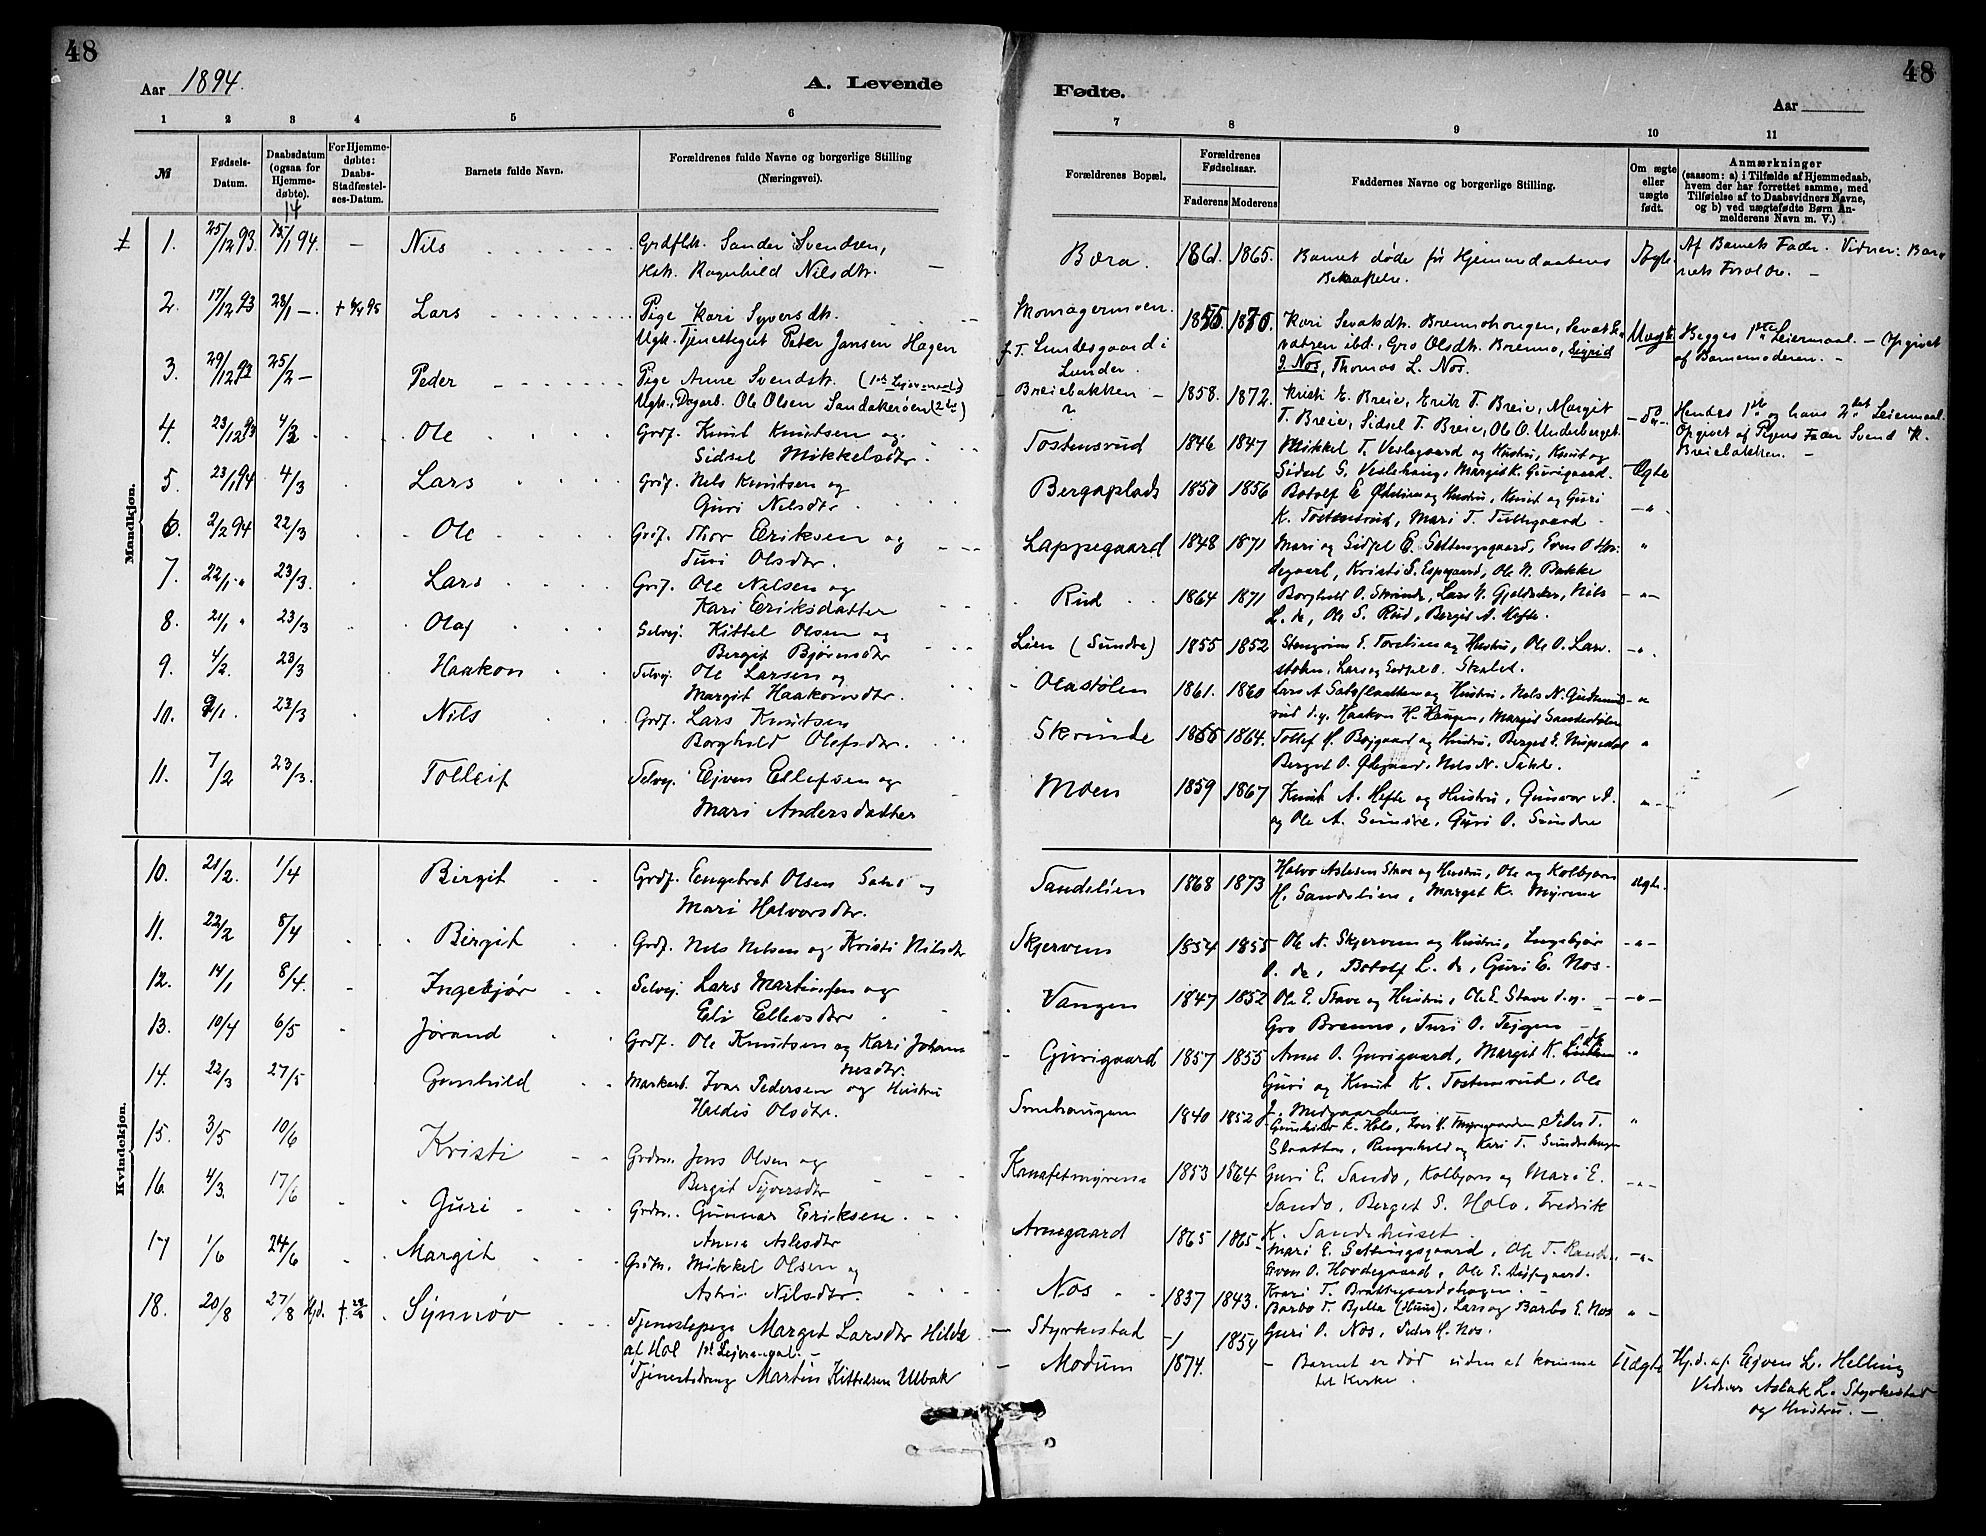 48
Aar 1894.
A. Levende
1 2 3 4 5 6
№
Fødsels-Datum.
Daabsdatum (ogsaa for Hjemmedøbte).
For Hjemmedøbte: Daabs-Stadfæstelses-Datum.
Barnets fulde Navn.
Forældrenes fulde Navne og borgerlige Stilling (Næringsvei).
Mandkjøn.
1. 25/12 93. 14/1 94. — Nils Grdflk. Sander Svendsen,
Hst. Ragnhild Nilsdtr. —
2. 17/12 93 28/1 — Lars Pige Kari Syversdtr.
Ugk. Tjenestegut Peter Jansen Hagen
3. 29/12 93 25/2 — Peder Pige Anne Svendsdtr. (1ste Lejermaal)
Ugk. Dagarb. Ole Olsen Sandakerøen (2det)
4. 23/12 93 4/3 Ole Grdf. Knut Knutsen og
Sidsel Mikkelsdtr
5. 23/1 94 4/3 Lars Grdf. Nels Knutsen og
Guri Nilsdtr
6. 2/2 94 22/3 Ole Grdf. Thor Eriksen og
Turi Olsdtr.
7. 22/1 " 23/3. Lars Grdf. Ole Nilsen og
Kari Eriksdatter
8. 21/1 " 23/3 Olaf Selvej. Kittel Olsen og
Bergit Bjørnsdtr
9. 4/2. 23/3 Haakon Selvej. Ole Larsen og
Margit Haakonsdtr.
10. 23/3 Nils Grdf. Lars Knutsen
Borghild Olefsdtr.
11. 7/2 23/3. Tolleif Selvej. Ejven Ellefsen og
Mari Andersdatter
Kvindekjøn.
10. 21/2. 1/4 Birgit Grdf. Engebret Olsen og
Mari Halvorsdtr.
11. 22/2 8/4 Birgit Grdf. Nels Nelsen og Kristi Nilsdtr
12. 14/1 8/4. Ingebjør Selvej. Lars Martinsen og
Eli Ellevsdtr
13. 10/4 6/5 Jørand Grdf. Ole Knutsen og Kari Johannesdtr.
14. 22/3 27/5 Gunhild Markarb. Ivar Pedersen og Hustru
Haldis Olsdtr.
15. 3/5 10/6 Kristi Jens Olsen og
Bergit Syversdtr
16. 4/3. 17/6 Guri Gunnar Eriksen
Anne Aslesdtr
17 1/6 24/6 Margit Mikkel Olsen og
Astri Nilsdtr.
18. 20/8 27/8 Hjd. Synnøv Tjenestepige Margit Larsdtr Hilde
at Hol 1st Lejermaal. —
Tjenestedreng Martin Kittelsen Ulbak
48
Fødte.
Aar
7 8 9 10 11
Forældrenes Bopæl.
Forældrenes Fødselsaar.
Faderens Moderens
Faddernes Navne og borgerlige Stilling.
Om ægte eller uægte født.
Anmærkninger
(saasom: a) i Tilfælde af Hjemmedaab, hvem der har forrettet samme, med Tilføielse af to Daabsvidners Navne, og b) ved uægtefødte Børn Anmelderens Navn m. V.)
Bæra. 1861. 1865. Barnet døde før Hjemmedaabens
Bekræftelse.
Ægte. Af Barnets Fader. Vidner: Barnets Forældre. —
Momagermoen
J. T. Lundesgaard i
Lunder.
1870. Kari Sevatsdtr. Brennohougen, Sevat Sevatsen ibd., Gro Olsdtr. Brenno, Sigrid
J. Nos, Thomas L. Nos.
Uægte Begges 1ste Leiermaal. — Opgivet
af Barnemoderen. —
Breiebakken — 1858. 1872. Kristi E. Breie, Erik T. Breie, Margit
T. Breie, Sidsel T. Breie, Ole O. Underberget.
— Do — Hendes 1ste og hans 2det Leiermaal.
Opgivet af Pigens Fader Svend K.
Breiebakken. —
Tostensrud 1846 1847 Mikkel T. Veslegaard og Hustru, Knut og
Sidsel S. Veslehaug, Margit K. Gurigaard.
Ægte
Bergaplads 1850 1856 Botolf E. Ødelien og Hustru, Knut og Guri
K. Tostensrud, Mari T. Tuftegaard.
— " —
Lappegaard 1848 1871 Mari og Sidsel E. Settungsgaard, Even O Hovdegaard, Kristi S. Espegaard, Ole N. Bakke
"
Rud 1864 1871 Borghild O. Skrinde, Lars N. Nils
L. do, Ole S. Rud, Bergit A. Hefte.
— " —
Lien (Sundre) 1855 1852 Stengrim E. Torelien og Hustru, Ole O. Larsstølen, Lars og Sidsel O. Skaled.
— " .
Olastølen 1861. 1860 Lars A og Hustru, Nels N. Gudmundsrud d.y. Haakon H. Haugen, Margit Sanderstølen
— "
Skrinde 1866 1864. Tollef H. Bøjgaard og Hustru, Berget E.
Berget O. Ødegaard, Nels N.
"
Moen 1859 1867 Knut A. Hefte og Hustru, Gunvor A.
og Ole A. Sundre, Guri O. Sundre
" —
Sandelien 1868 1873 Halvor Aslesen Stave og Hustru, Ole og Kolbjørn
H. Sandelien, Marget K. Myrene
Ægte.
Skjerven 1854 1855 Ole N. Skjerven og Hustru, Ingebjør
O. do, Botolf L. do, Guri E. Nos.
— " —
Vangen 1847 1852 Ole E. Stave og Hustru, Ole E. Stave d.y. —
Gro Brenno, Turi O. Tejgen —
— " —
Gurigaard 1857 1855 Anne O. Gurigaard, Margit K.
Guri og Knut K. Tostensrud, Ole
J. Medgaarden
"
1840 1852 Gunhild K. Holo, Iver H. Myregaarden, Peder T.
Slaatten, Ragnhild og Kari T. Sundrehagen
"
1853 1864 Guri E. Sando, Kolbjørn og Mari E.
Sando, Berget S. Holo, Fredrik
K. Sandehuset
— " —
Arnegaard 1865 1865 Mari E. Settungsgaard, Ole T. Rand
Even O. Hovdegaard, Ole E. Espegaard.
— " —
Nos 1837 1843. Kari T. Brattegaardshagen. —
Barbo T. Bjella (Huus), Lars og Barbo E. Nos
Guri O. Nos, Peder H. Nos.
" —
Styrkestad 1854
Modum 1874. — Barnet er død uden at komme
til Kirke.
Uægte Hj.d. af Ejven L. Helling
Vidner Aslak L. Styrkestad
og Hustru. —